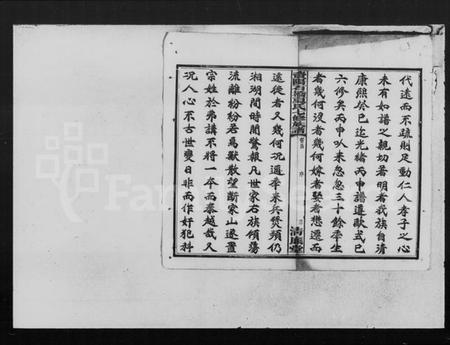 代遠而不疏則足動仁人孝子之心
未有如譜之親切著明者我族自清
康熙癸巳迄光緒丙申譜遭歐式已
六修矣丙申以来忽忽三十餘年生
者幾何没者幾何嫁者娶者懋遷而
六修族譜
卷首
序
清廉堂
遠徙者又幾何况通年来兵燹頻仍
湘湖間時聞警報凡世家右族傾蕩
流離紛紛若鳥獸散望斷家山遂置
宗姓於弗講不將一本而秦越哉又
况人心不古世變日非而作奸犯科